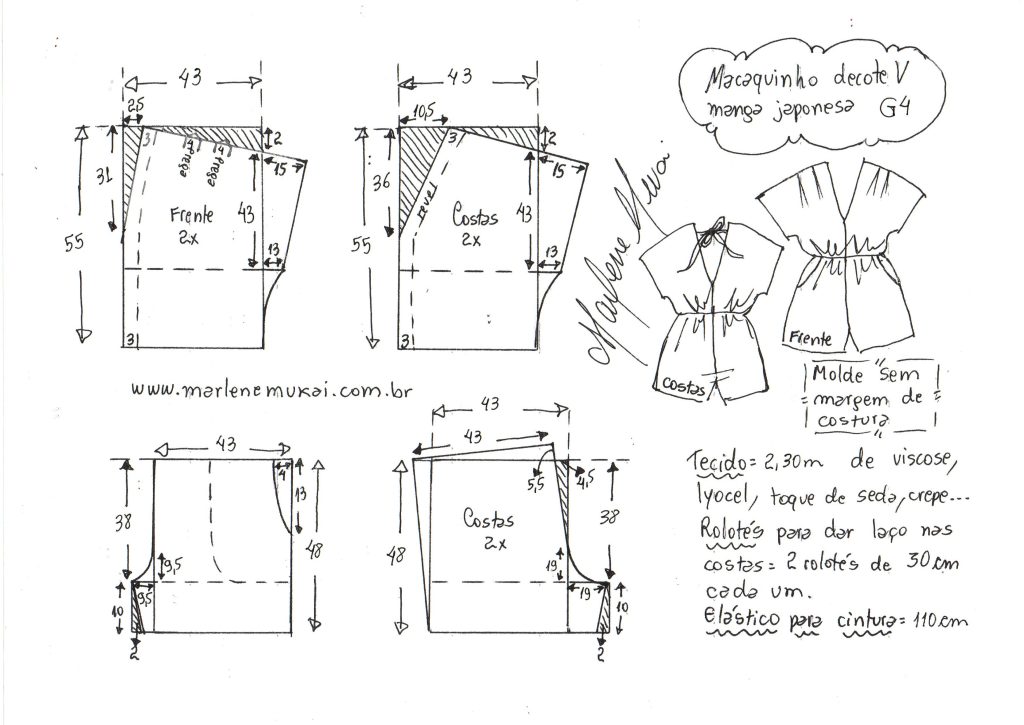 Macaquinho decote V
manga japonesa G4
43
2,5
3
prega
4
prega
4
2
31
15
Frente
2x
43
55
13
3
43
10,5
3
2
36
15
revel
Costas
2x
43
55
13
3
Marlene Mukai
Frente
Costas
Molde sem
margem de
costura
www.marlenemukai.com.br
43
4
13
38
48
9,5
9,5
10
2
43
43
5,5
4,5
Costas
2x
38
48
19
19
10
2
Tecido = 2,30m de viscose,
lyocel, toque de seda, crepe...
Rolotés para dar laço nas
costas = 2 rolotés de 30cm
cada um.
Elástico para cintura = 110cm